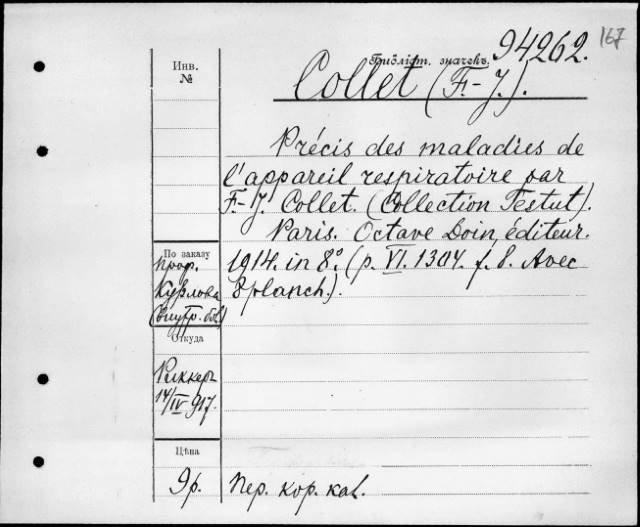 167
Библіот. значекъ. 94262.
Инв.
№
Collet (F.-J.).
Précis des maladies de
l'appareil respiratoire par
F.-J. Collet. (Collection Testut).
Paris. Octave Doin, éditeur.
1914. in 8°. (p. VI. 1304. f. 8. Avec
8 planch.).
По заказу
проф.
Курлова
(внутр. бол.)
Откуда
Риккеръ
14/IV 917.
Цѣна
9р.
пер. кор. кал.